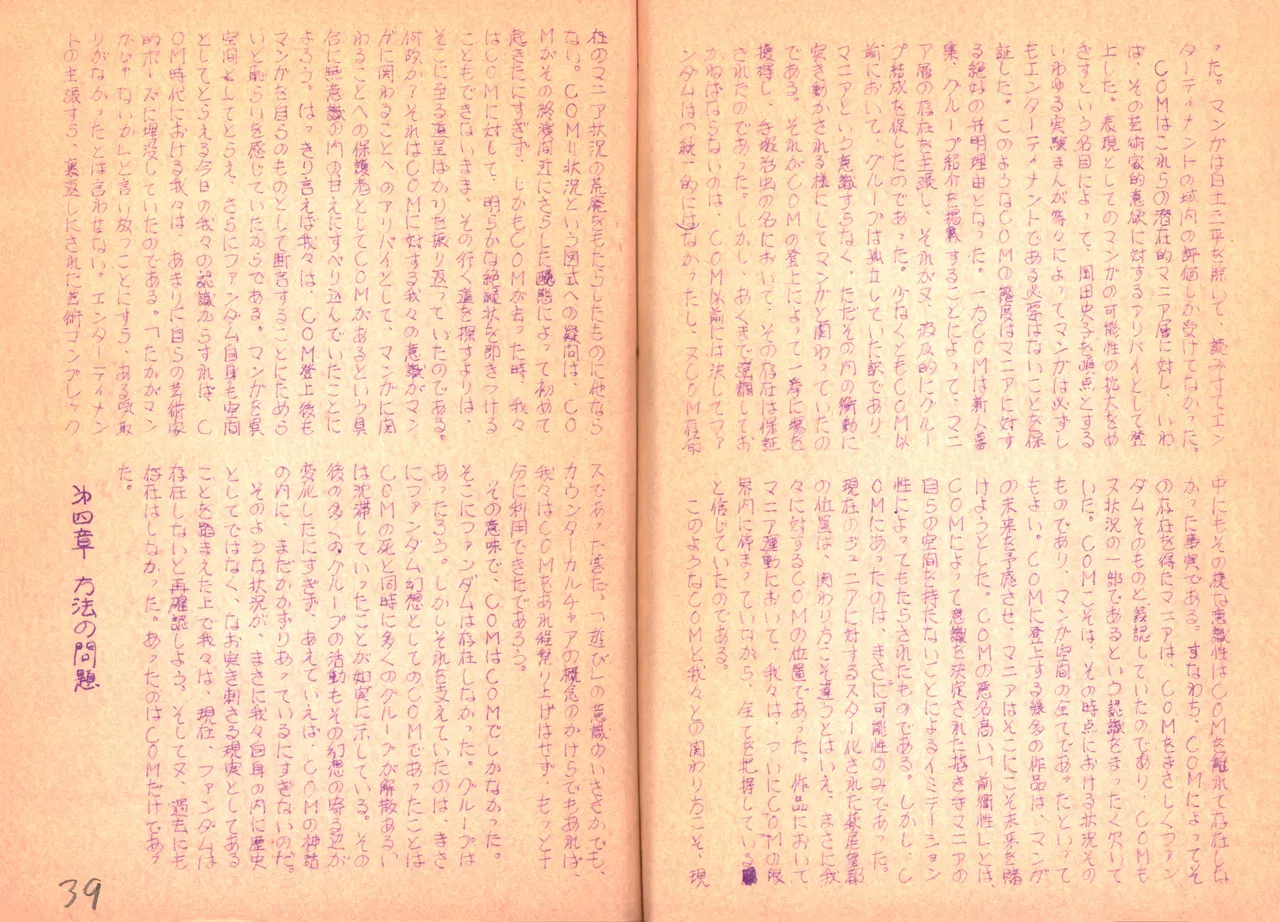 った。マンガは白土三平を除いて、読みすてエン
ターティナメントの域内の評価しか受けてなかった。
　COMはこれらの潜在的マニア層に対し、いわ
ば、その芸術家的意欲に対するアリバイとして登
上した。表現としてのマンガの可能性の拡大をめ
ざすという名目によって、岡田史子を頂点とする
いわゆる実験まんが等々によってマンガは必ずし
もエンターティナントである必要はないことを保
証した。このようなCOMの態度はマニアに対す
る絶好の弁明理由となった。一方COMは新人募
集、グループ紹介を掲載することによって、マニ
ア層の存在を主張し、それが又、波及的にグルー
プ結成を促したのであった。少なくともCOM以
前において、グループは孤立していた訳であり、
マニアという意識すらなく、ただその内の衝動に
突き動かされる様にしてマンガと関わっていたの
である。それがCOMの登上によって一挙に場を
獲得し、手塚治虫の名において、その存在は保証
されたのであった。しかし、あくまで強調してお
かねばならないのは、COM以前には決してファ
ンダムは(統一的には)なかったし、又COM存命
中にもその様な意識性はCOMを離れて存在しな
かった事実である。すなわち、COMによってそ
の存在を得たマニアは、COMをまさしくファン
ダムそのものと誤認していたのであり、COMも
又状況の一部であるという認識をまったく欠いて
いた。COMこそは、その時点における状況その
ものであり、マンガ空間の全てであったといって
もよい。COMに登上する幾多の作品は、マンガ
の未来を予感させ、マニアはそこにこそ未来を賭
けようとした。COMの悪名高い「前衛性」とは、
COMによって意識を決定された描き手マニアの
自らの空間を持たないことによるイミテーション
性によってもたらされたものである。しかし、C
OMにあったのは、まさに可能性のみであった。
現在のジュニアに対するスター化された萩尾望都
の位置は、関わり方こそ違うとはいえ、まさに我
々に対するCOMの位置であった。作品において
マニア運動において、我々は、ついにCOMの限
界内に停まっていながら、全てを把握している
と信じていたのである。
　このようなCOMと我々との関わり方こそ、現
在のマニア状況の荒廃をもたらしたものに他なら
ない。COMリ状況という図式への疑問は、CO
Mがその終演間近にさらした醜態によって初めて
起きたにすぎず、しかもCOMが去った時、我々
はCOMに対して、明らかな絶縁状を叩きつける
こともできないまま、その行く道を探すよりは、
そこに至る道程ばかりを振り返っていたのである。
何故か？それはCOMに対する我々の意識がマン
ガに関わることへのアリバイとして、マンガに関
わることへの保護者としてCOMがあるという具
合に無意識の内の甘えにすべり込んでいたことに
よろう。はっきり言えば我々は、COM登上後も
マンガを自らのものとして断言することにためら
いと戦らいを感じていたからである。マンガを真
空間としてとらえ、さらにファンダム自身も空間
としてとらえる今日の我々の認識からすれば、C
OM時代における我々は、あまりに自らの芸術家
的ポーズに埋没していたのである。「たかがマン
がじゃないか」と言い放つことにすら、ある気取
りがなかったとは言わせない。エンターティナメン
トの主張すら、裏返しにされた芸術コンプレック
スであった筈だ。「遊び」の意識のいささかでも、
カウンターカルチャアの概念のかけらでもあれば、
我々はCOMをあれ程祭り上げはせず、もっと十
分に利用できたであろう。
　その意味で、COMはCOMでしかなかった。
そこにファンダムは存在しなかった。グループは
あったろう。しかしそれを支えていたのは、まさ
にファンダム幻想としてのCOMであったことは
COMの死と同時に多くのグループが解散あるい
は沈滞していったことが如実に示している。その
後の多くのグループの活動もその幻想の寄る辺が
変化したにすぎず、あえていえば、COMの神話
の内に、まだかかずりあっているにすぎないのだ。
　そのような状況が、まさに我々自身の内に歴史
としてではなく、なお突き刺さる現実としてある
ことを踏まえた上で我々は、現在、ファンダムは
存在しないと再確認しよう。そして又、過去にも
存在はしなかった。あったのはCOMだけであっ
た。
第四章　方法の問題
39